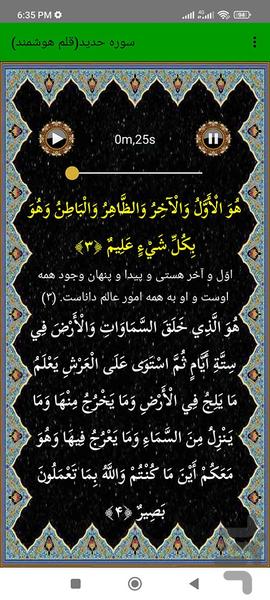 6:35 PM
سوره حدید(قلم هوشمند)
0m,25s
هُوَ الْأَوَّلُ وَالْآخِرُ وَالظَّاهِرُ وَالْبَاطِنُ وَهُوَ
بِكُلِّ شَيْءٍ عَلِيمٌ ﴿۳﴾
اوّل و آخر هستی و پیدا و پنهان وجود همه
اوست و او به همه امور عالم داناست. (۳)
هُوَ الَّذِي خَلَقَ السَّمَاوَاتِ وَالْأَرْضَ فِي
سِتَّةِ أَيَّامٍ ثُمَّ اسْتَوَى عَلَى الْعَرْشِ يَعْلَمُ
مَا يَلِجُ فِي الْأَرْضِ وَمَا يَخْرُجُ مِنْهَا وَمَا
يَنْزِلُ مِنَ السَّمَاءِ وَمَا يَعْرُجُ فِيهَا وَهُوَ
مَعَكُمْ أَيْنَ مَا كُنْتُمْ وَاللَّهُ بِمَا تَعْمَلُونَ
بَصِيرٌ ﴿۴﴾